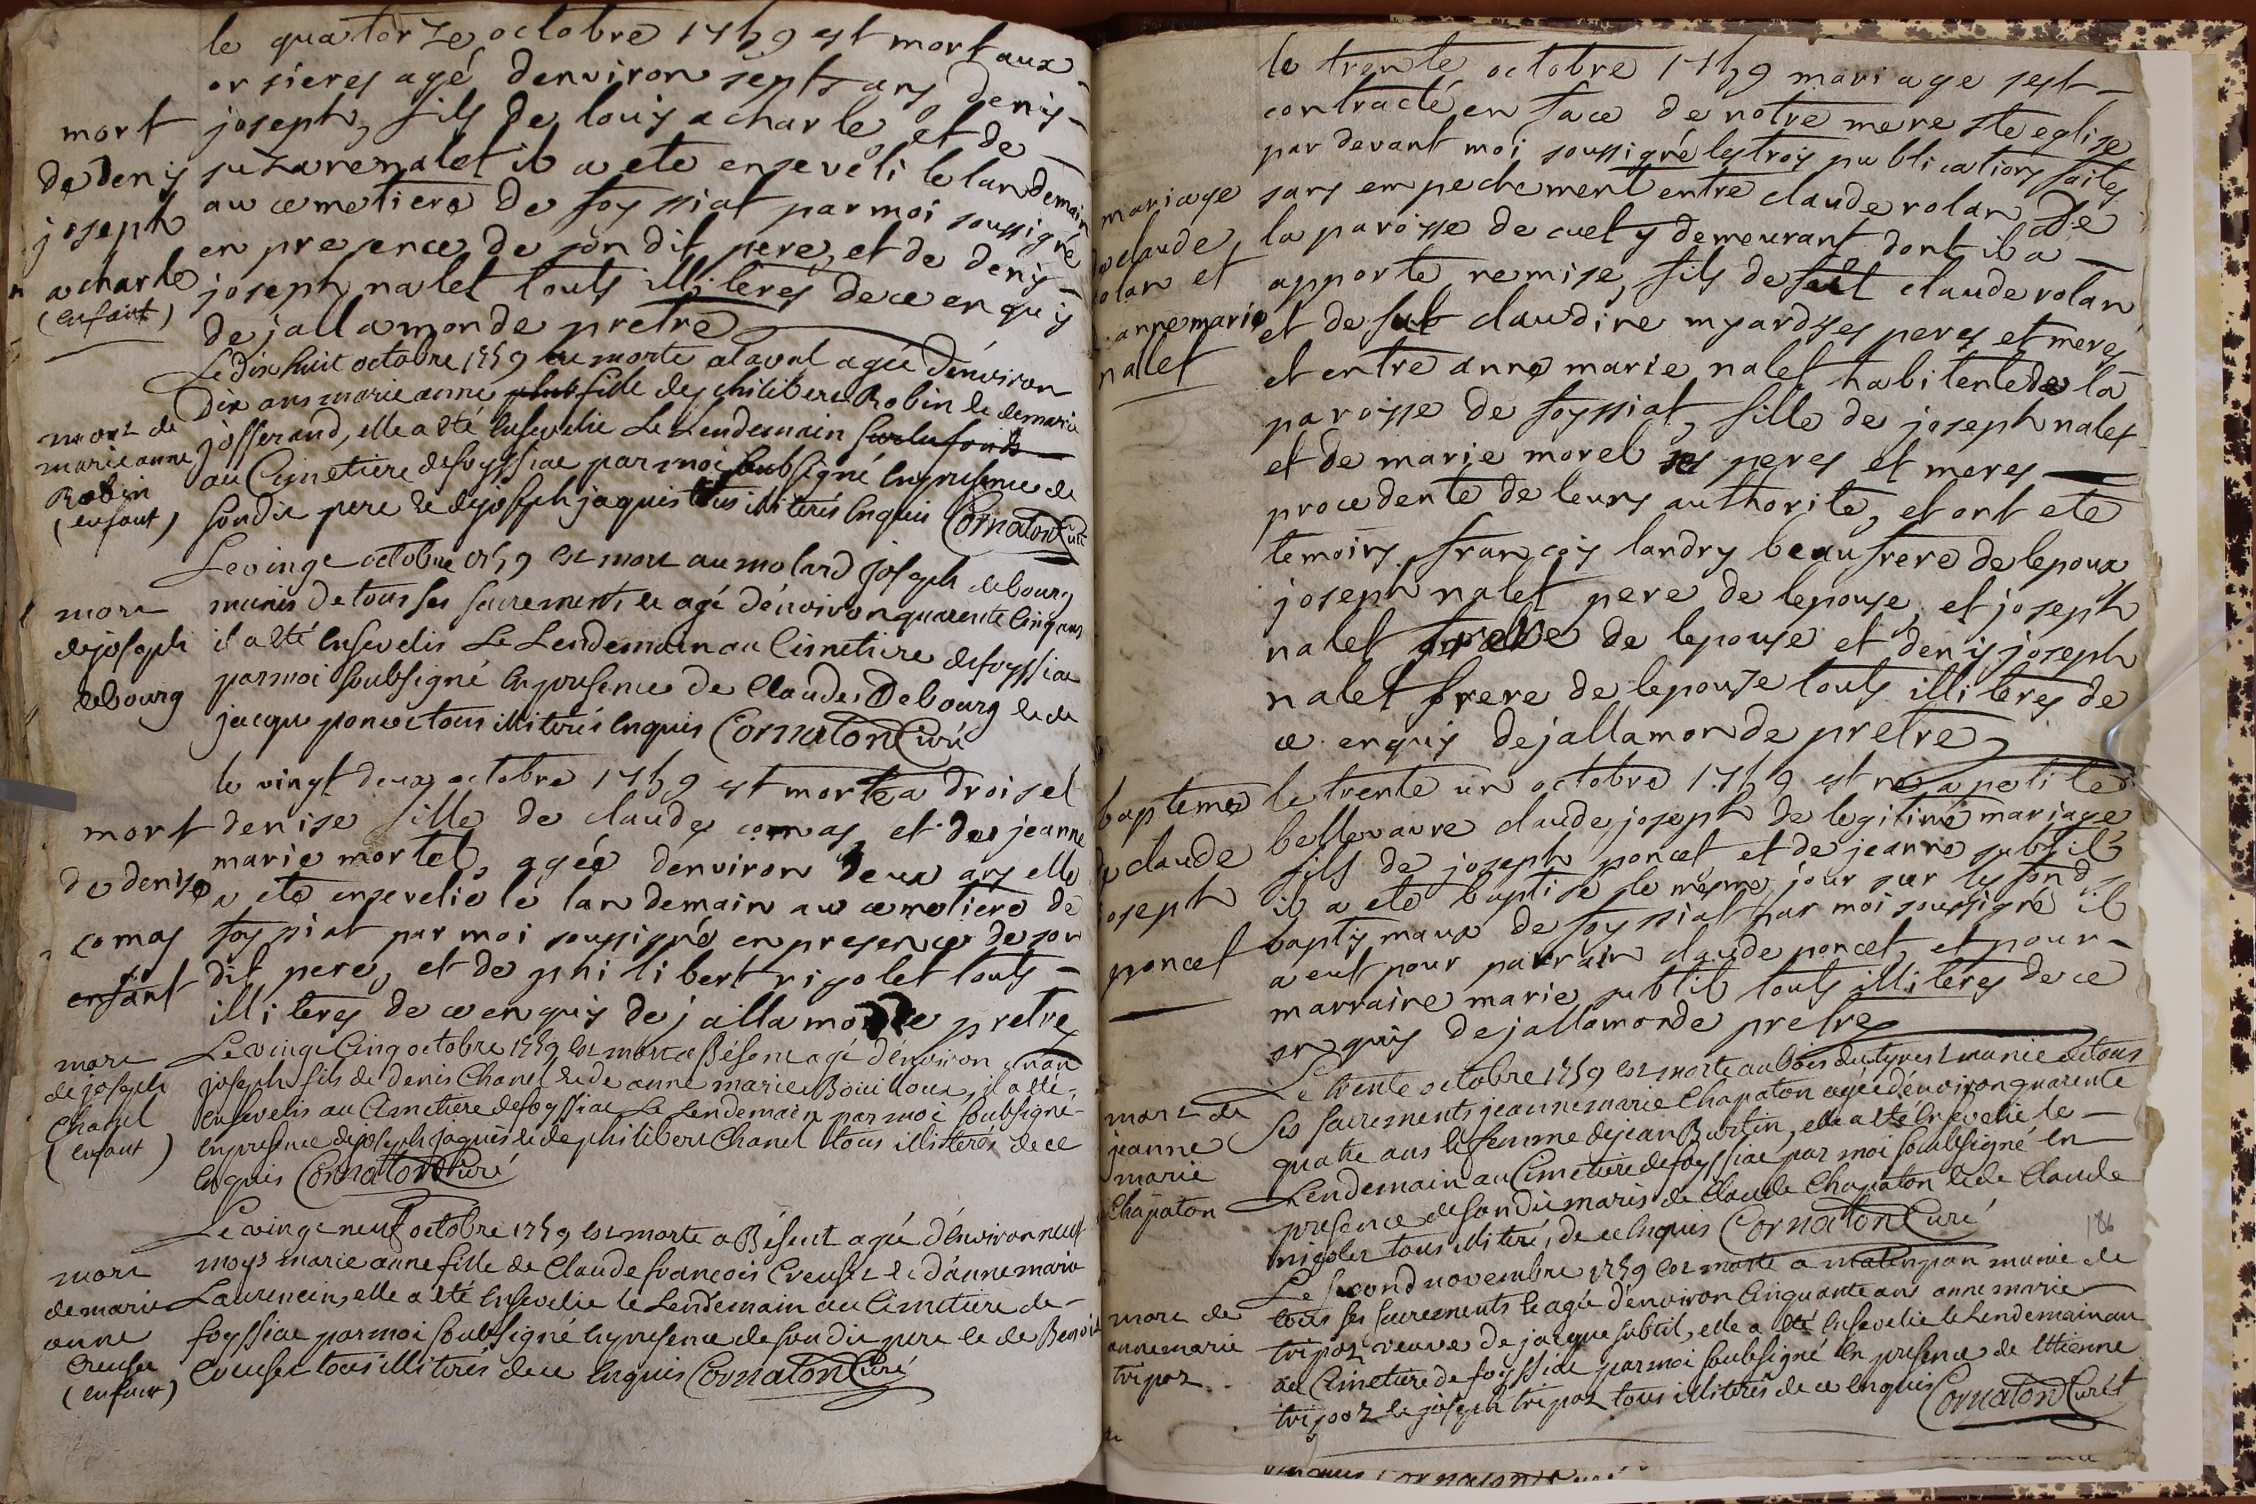 le quatorze octobre 1759 est mort aux
orsieres agé denviron sept ans denis
mort
de denis
joseph
acharle
(enfant)
joseph, fils de louis acharle et de
suzanne nalet il a ete enseveli le landemain
au cemetiere de foyssiat par moi soussigné
en presence de son dit pere, et de denis
joseph nalet touts illiteres de ce enquis
dejallamonde pretre
Le dix huit octobre 1759 est morte alaval agée d'énviron
mort de
marie anne
Robin
(enfant)
dix ans marie anne fille de philibert Robin et de marie
josserand, elle a été Ensevelie Le Lendemain
au Cimetiere de foyssiat par moi soubsigné En presence de
son dit pere et de joseph jaquis tous illiterés Enquis Cornaton Curé
Le vingt octobre 1759 est mort au molard joseph debourg
mort
de joseph
debourg
munis de tous ses sacrements et agé d'énviron quarente Cinq ans
il a été Ensevelis Le Lendemain au Cimetiere de foyssiat
par moi soubsigné En presence de Claude Debourg et de
jacque poncet tous illiterés Enquis Cornaton Curé
le vingt deux octobre 1759 est morte a droiset
mort
de denise
comas
enfant
denise fille de claude comas et de jeanne
marie mortel, agée denviron deux ans elle
a ete ensevelie le landemain au cemetiere de
foyssiat par moi soussigné en presence de son
dit pere, et de philibert rigolet touts
illiteres de ce enquis dejallamonde pretre
Le vingt Cinq octobre 1759 est mort a Bésent agé d'énviron un an
mort
de joseph
Chanel
(enfant)
joseph fils de denis Chanel et de anne marie Bouilloux, il a été
Ensevelis au Cimetiere de foyssiat Le Lendemain par moi soubsigné
En presence de joseph jaquis et de philibert Chanel tous illiterés de ce
Enquis Cornaton Curé
Le vingt neuf octobre 1759 est morte a Bésent agée d'énviron neuf
mort
de marie
anne
Creuset
(enfant)
moys marie anne fille de Claude françois Creuset et d'anne marie
Laurencin, elle a été Ensevelie le Lendemain au Cimetiere de
foyssiat par moi soubsigné En presence de son dit pere et de Benoit
Creuset tous illiterés de ce Enquis Cornaton Curé
le trente octobre 1759 mariage sest
contracté en face de notre mere ste eglise
par devant moi soussigné les trois publications faites
mariage
de claude
rolan et
anne marie
nalet
sans empechement entre claude rolan de
la paroisse de cuet y demeurant dont il a
apporte remise, fils de feut claude rolan
et de feut claudine myard ses peres et meres
et entre anne marie nalet habitente de la
paroisse de foyssiat, fille de joseph nalet
et de marie morel ses peres et meres
procedente de leurs authorité, et ont ete
temoins françois landry beaufrere de lepoux
joseph nalet pere de lepouse, et joseph
nalet frere de lepouse et denis joseph
nalet frere de lepouse touts illiteres de
ce enquis dejallamonde pretre
bapteme
de claude
joseph
poncet
le trente un octobre 1759 est né a petite
bellevavre claude joseph de legitime mariage
fils de joseph poncet et de jeanne subtil
il a ete baptisé le meme jour sur les fonds
baptismaux de foyssiat par moi soussigné il
a eut pour parrain claude poncet, et pour
marraine marie subtil touts illiteres de ce
enquis dejallamonde pretre
Le trente octobre 1759 est morte au bois munie de tous
mort de
jeanne
marie
Chapaton
ses sacrements jeanne marie Chapaton agée d'énviron quarente
quatre ans et femme de jean Burtin, elle a été Ensevelie le
Lendemain au Cimetiere de foyssiat par moi soubsigné En
presence de son dit maris de Claude Chapaton et de Claude
nigolet tous illiteré, de ce Enquis Cornaton Curé
186
Le second novembre 1759 est morte a munie de
mort de
anne marie
tripoz
tous ses sacrements et agée d'énviron Cinquante ans anne marie
tripoz veuve de jacque subtil, elle a été Ensevelie le Lendemain au
Cimetiere de foyssiat par moi soubsigné En presence de Etienne
tripoz et joseph tripoz tous illiterés de ce Enquis Cornaton Curé